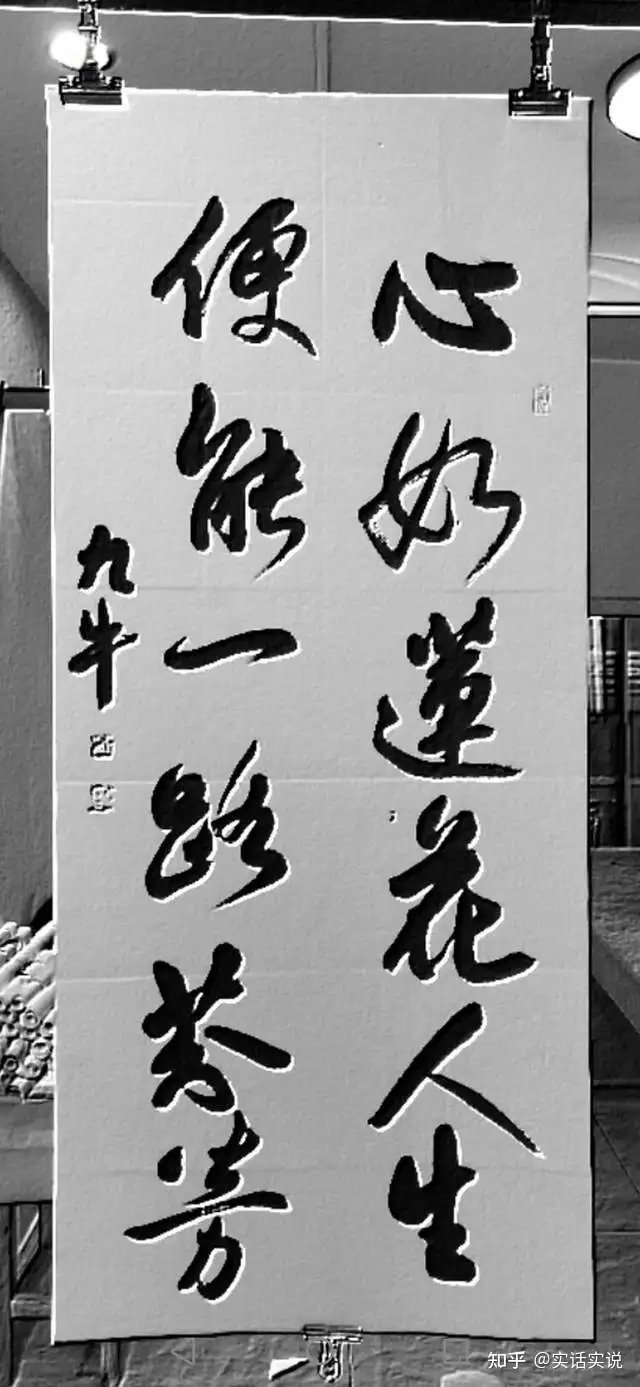 心如蓮花人生
便能一路芬芳
九牛
知乎 @实话实说